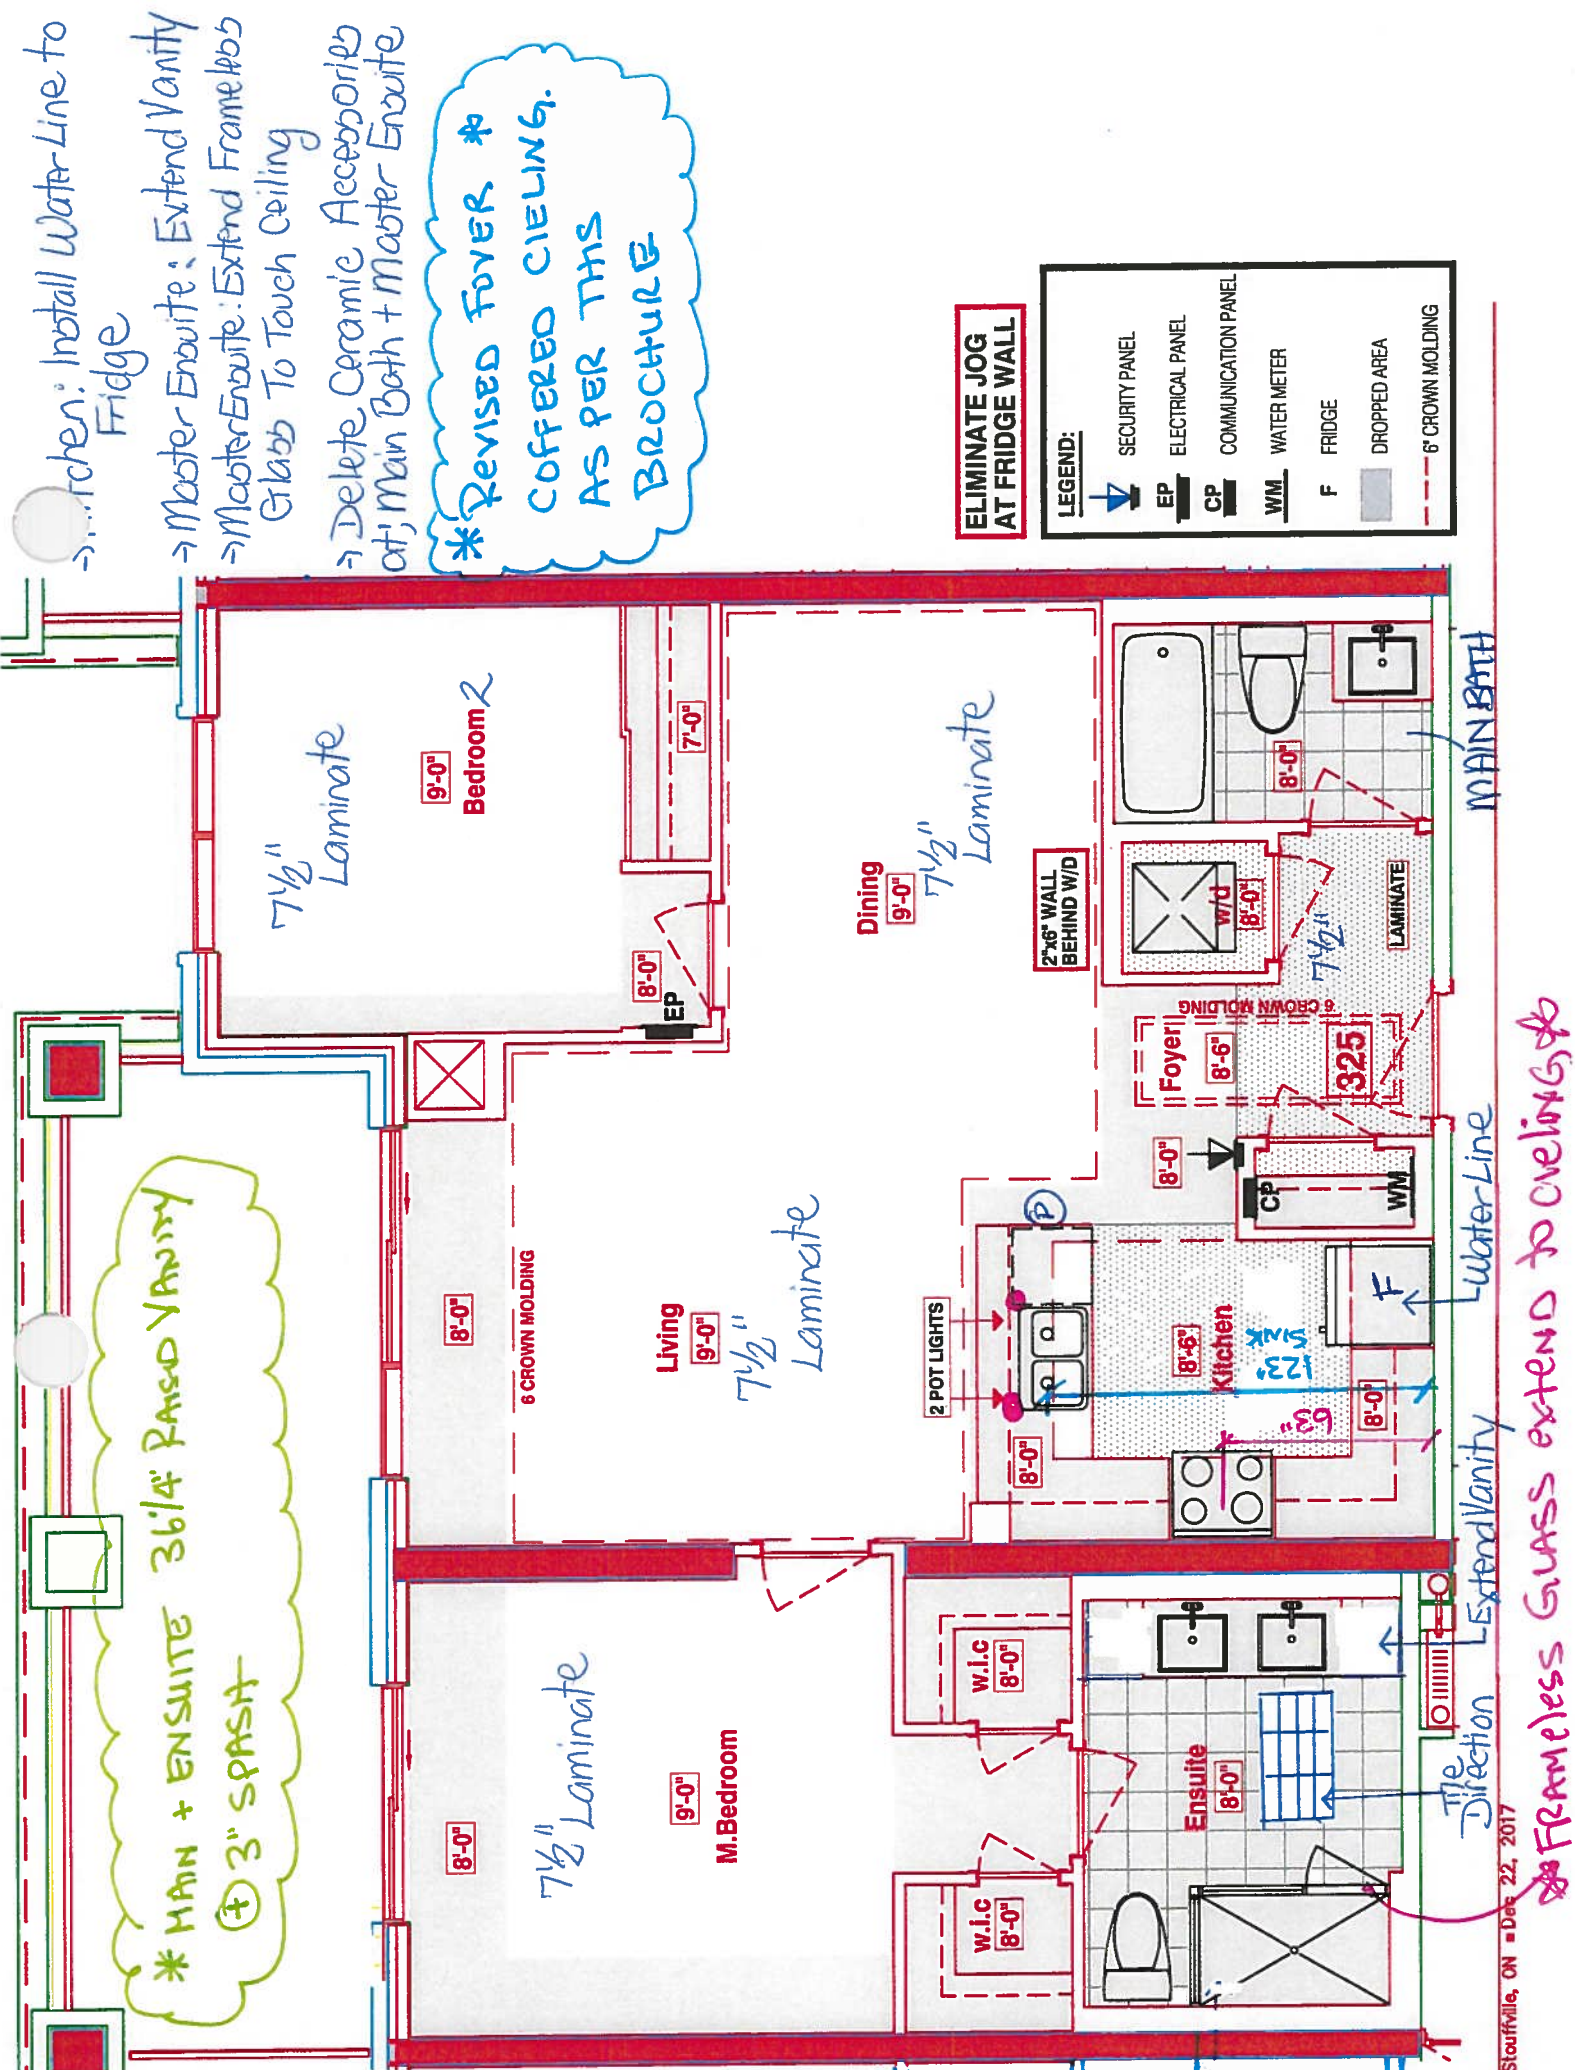 → Kitchen: Install Water Line to
Fridge
→ Master Ensuite: Extend Vanity
→ Master Ensuite: Extend Frameless
Glass To Touch Ceiling
→ Delete Ceramic Accessories
at; Main Bath + Master Ensuite
* REVISED FOYER *
COFFERED CIELING.
AS PER THIS
BROCHURE
ELIMINATE JOG
AT FRIDGE WALL
LEGEND:
SECURITY PANEL
EP ELECTRICAL PANEL
CP COMMUNICATION PANEL
WM WATER METER
F FRIDGE
DROPPED AREA
6" CROWN MOLDING
7½"
Laminate
9'-0"
Bedroom 2
7'-0"
8'-0"
EP
Dining
9'-0"
7½"
Laminate
2"x6" WALL
BEHIND W/D
w/d
8'-0"
8'-0"
MAIN BATH
7½"
LAMINATE
6 CROWN MOLDING
Foyer
8'-6"
325
8'-0"
CP
WM
* MAIN + ENSUITE 36¼" RAISED VANITY
+ 3" SPASH
8'-0"
6 CROWN MOLDING
Living
9'-0"
7½"
Laminate
2 POT LIGHTS
P
8'-0"
8'-6"
Kitchen
123"
SINK
63"
8'-0"
F
Water Line
8'-0"
7½"
Laminate
9'-0"
M.Bedroom
w.i.c
8'-0"
w.i.c
8'-0"
Ensuite
8'-0"
Extend Vanity
Tile
Direction
* FRAMELESS GLASS extend to CIELING *
Stouffville, ON ■ Dec 22, 2017